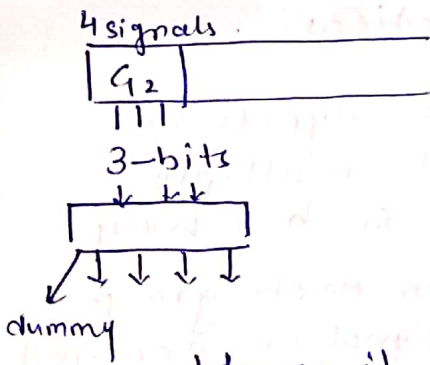 4 signals.
G2
3-bits
dummy